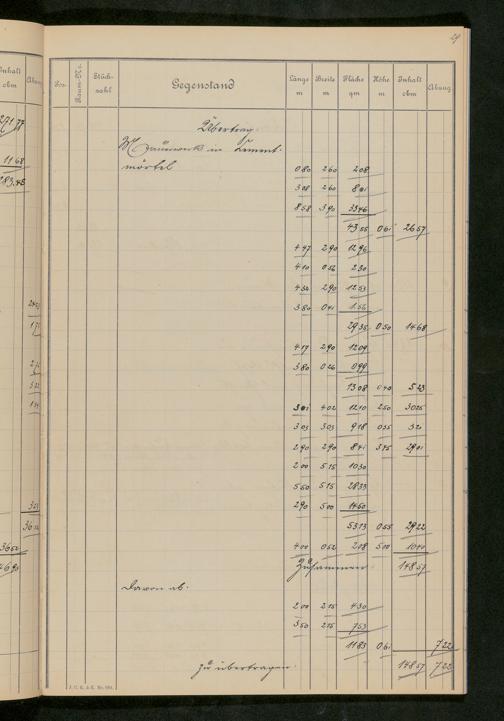 29
Pos. Raum-No. Stückzahl Gegenstand Länge m Breite m Fläche qm Höhe m Inhalt cbm Abzug
Übertrag.
Mauerwerk in Zement-
mörtel 0 80 2 60 2 08
3 08 2 60 8 01
8 58 3 90 33 46
43 55 0 61 26 57
4 47 2 90 12 96
4 10 0 56 2 30
2 90 12 53
3 80 0 41 1 56
29 35 0 50 14 68
4 17 2 90 12 09
3 80 0 26 0 99
13 08 0 40 5 23
3 01 4 02 12 10 2 50 30 25
3 03 3 03 9 18 0 35
2 90 2 90 8 41 3 45 29 01
2 00 5 15 10 30
5 50 5 15 28 33
2 90 5 00 14 50
53 13 0 55 29 22
4 00 0 52 2 08 5 00 10 40
Zusammen 148 57
Davon ab.
2 00 2 15 4 30
3 50 2 15 7 53
11 83 0 61 7 22
Zu übertragen. 148 57 7 22